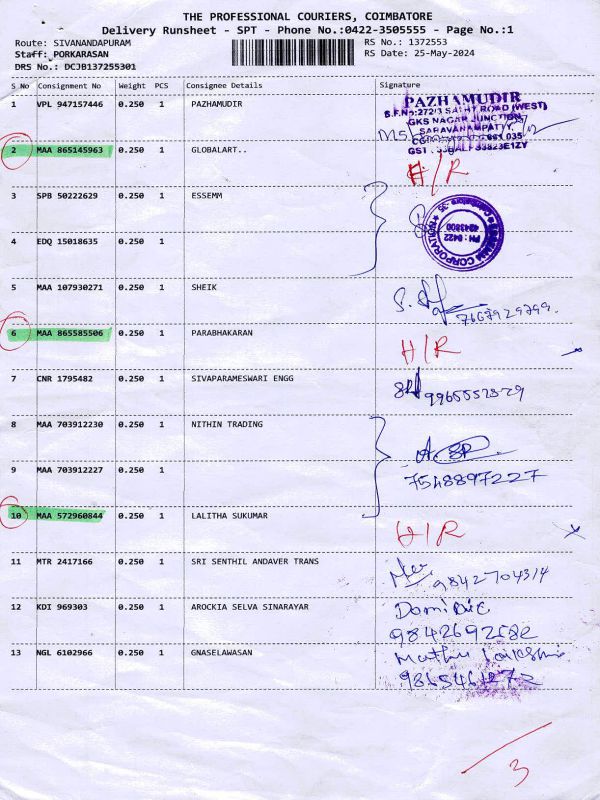 THE PROFESSIONAL COURIERS, COIMBATORE
Delivery Runsheet - SPT - Phone No.:0422-3505555 - Page No.:1
Route: SIVANANDAPURAM RS No.: 1372553
Staff: PORKARASAN RS Date: 25-May-2024
DRS No.: DCJB137255301
S No Consignment No Weight PCS Consignee Details Signature
1 VPL 947157446 0.250 1 PAZHAMUDIR
PAZHAMUDIR
GKS NAGAR JUNCTION
SARAVANAMPATTY,
2 MAA 865145963 0.250 1 GLOBALART.. H/R
3 SPB 50222629 0.250 1 ESSEMM
CORPORATION
PH : 0422
4243800
4 EDQ 15018635 0.250 1
5 MAA 107930271 0.250 1 SHEIK
7667929799.
6 MAA 865585506 0.250 1 PARABHAKARAN H/R
7 CNR 1795482 0.250 1 SIVAPARAMESWARI ENGG
8 MAA 703912230 0.250 1 NITHIN TRADING
9 MAA 703912227 0.250 1
7548897227
10 MAA 572960844 0.250 1 LALITHA SUKUMAR H/R
11 MTR 2417166 0.250 1 SRI SENTHIL ANDAVER TRANS
9842704314
12 KDI 969303 0.250 1 AROCKIA SELVA SINARAYAR
13 NGL 6102966 0.250 1 GNASELAWASAN
3